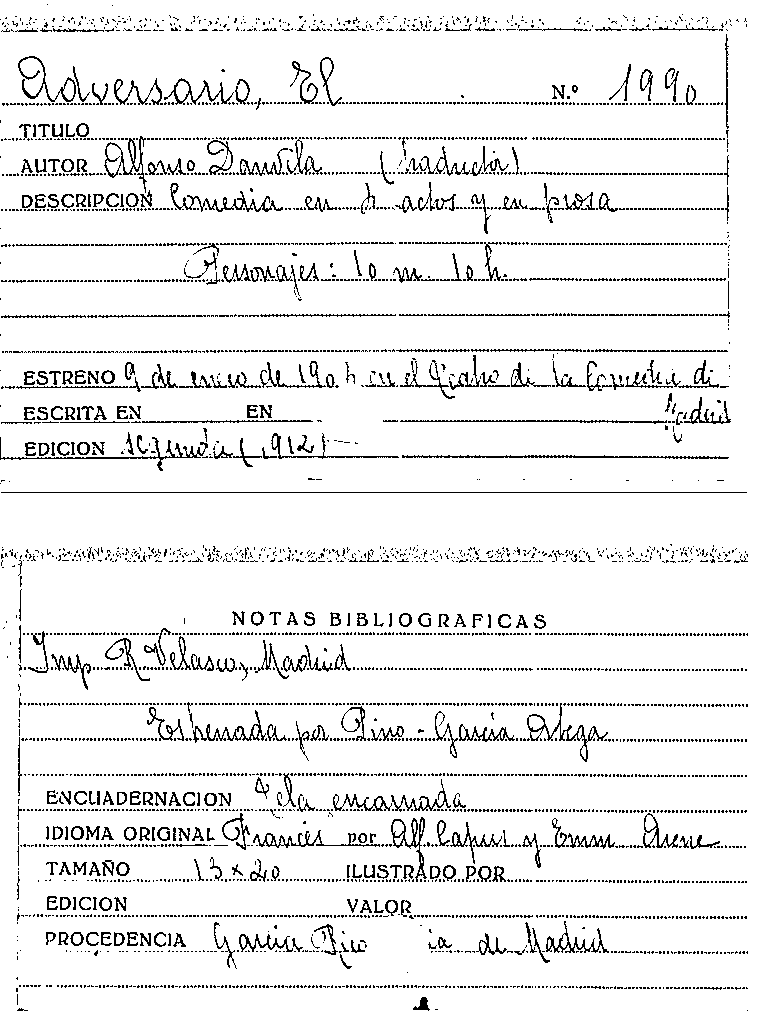 Adversario, El N.º 1990
TITULO
AUTOR Alfonso Danvila (traductor)
DESCRIPCION Comedia en 4 actos y en prosa
Personajes: 10 m. 10 h.
ESTRENO 9 de enero de 1904 en el Teatro de la Comedia de
ESCRITA EN EN Madrid
EDICION segunda (1912)
NOTAS BIBLIOGRAFICAS
Imp. R. Velasco, Madrid
Estrenada por Pino - García Ortega
ENCUADERNACION Tela encarnada
IDIOMA ORIGINAL Francés por Alf. Capus y Emm Arene
TAMAÑO 13 x 20 ILUSTRADO POR
EDICION VALOR
PROCEDENCIA García Rico de Madrid